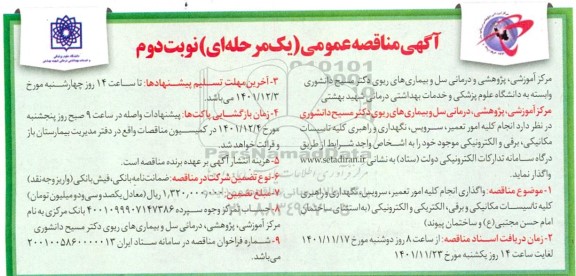 آگهی مناقصه عمومی (یک مرحله‌ای) نوبت دوم
مرکز آموزشی، پژوهشی و درمانی سل و بیماری‌های ریوی دکتر مسیح دانشوری
وابسته به دانشگاه علوم پزشکی و خدمات بهداشتی درمانی شهید بهشتی
مرکز آموزشی، پژوهشی، درمانی سل و بیماری‌های ریوی دکتر مسیح دانشوری
در نظر دارد انجام کلیه امور تعمیر، سرویس، نگهداری و راهبری کلیه تاسیسات
مکانیکی، برقی و الکترونیکی موجود خود را به اشخاص واجد شرایط از طریق
درگاه سامانه تدارکات الکترونیکی دولت (ستاد) به نشانی www.setadiran.ir
واگذار نماید.
۱-موضوع مناقصه: واگذاری انجام کلیه امور تعمیر، سرویس، نگهداری و راهبری
کلیه تاسیسات مکانیکی و برقی، الکتریکی و الکترونیکی (به‌استثنای ساختمان
امام حسن مجتبی(ع) و ساختمان پیوند)
۲-زمان دریافت اسناد مناقصه: از ساعت ۸ روز دوشنبه مورخ ۱۴۰۱/۱۱/۱۷
لغایت ساعت ۱۴ روز یکشنبه مورخ ۱۴۰۱/۱۱/۲۳
۳-آخرین مهلت تسلیم پیشنهادها: تا ساعت ۱۴ روز چهارشنبه مورخ
۱۴۰۱/۱۲/۳ می‌باشد.
۴-زمان بازگشایی پاکت‌ها: پیشنهادات واصله در ساعت ۹ صبح روز پنجشنبه
مورخ ۱۴۰۱/۱۲/۴ در کمیسیون مناقصات واقع در دفتر مدیریت بیمارستان باز
و قرائت خواهد شد.
۵-هزینه انتشار آگهی بر عهده برنده مناقصه است.
۶-نوع تضمین شرکت در مناقصه: ضمانت‌نامه بانکی، فیش بانکی (واریز وجه نقد)
۷-مبلغ تضمین: ۱,۳۲۰,۰۰۰,۰۰۰ ریال (معادل یکصد و سی و دو میلیون تومان)
۸-حساب تمرکز وجوه سپرده ۴۰۰۱۰۹۹۹۰۷۱۴۷۳۸۶ بانک مرکزی به نام
مرکز آموزشی، پژوهشی، درمانی سل و بیماری‌های ریوی دکتر مسیح دانشوری
۹-شماره فراخوان مناقصه در سامانه ستاد ایران ۲۰۰۱۰۰۵۸۶۰۰۰۰۰۱۳
می‌باشد.